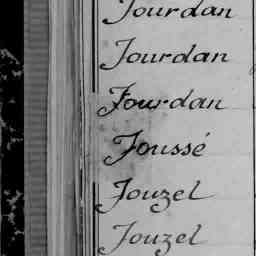 Jourdan
Jourdan
Jourdan
Joussé
Jouzel
Jouzel